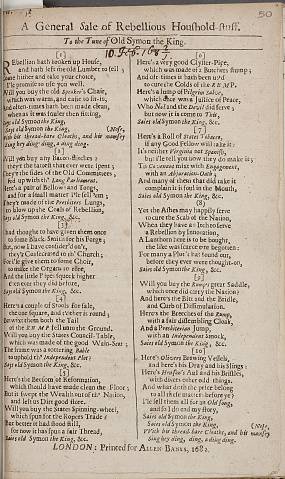 50
A General Sale of Rebellious Houshold-stuff.
To the Tune of Old Symon the King.
[1]
REbellion hath broken up House,
and hath left me old Lumber to sell;
Come hither and take your choice,
I'le promise to use you well.
Will you buy the old Speaker's Chair,
which was warm, and easie to sit in,
And often-times hath been made clean,
when as it was fouler than fitting.
Says old Symon the King,
Says old Symon the King, (Nose,
With his thread-bare Cloaths, and his mamsey
Sing hey ding, ding, a ding, ding.
[2]
Will you buy any Bacon-Flitches
They're the sides of the Old Committees,
Fed up ith' Long Parliament.
Here's a pair of Bellows and Tongs,
and for a small matter I'le sell 'um;
They're made of the Presbiters Lungs,
to blow up the Coals of Rebellion,
Says old Symon the King, &c.
[3]
I had thought to have given them once
to some Black-Smith for his Forge;
But, now I have consider'd on't,
they're Consecrated to th' Church:
For I'le give them to some Choir,
to make the Organs to rore,
And the little Pipes squeek higher
than ever they did before,
Says old Symon the King, &c.
[4]
Here's a couple of Stools for sale,
the one square, and t'other is round;
Betwixt them both the Tail
of the RUMP fell unto the Ground.
Will you buy the States Council-Table,
which was made of the good Wain-Scot;
The frame was a tottering Bable
to uphold th' Independent Plot;
Says old Symon the King, &c.
[5]
Here's the Beesom of Reformation,
which should have made clean the Floor;
But it swept the Wealth out of th' Nation,
and left us Dirt good store.
Will you buy the States Spinning-wheel,
which spun for the Ropers Trade?
But better it had stood still,
for now it has spun a fair Thread,
Says old Symon the King, &c.
[6]
Here's a very good Clyster-Pipe,
which was made of a Butchers stump;
And oft-times it hath been us'd
to cure the Colds of the RUMP.
Here's a lump of Pilgrims Salve,
which once was a Justice of Peace,
Who Nol and the Devil did serve,
but now it is come to This,
Saies old Symon the King, &c.
[7]
Here's a Roll of States Tobacco,
if any Good Fellow will take it;
It's neither Virginia nor Spanish,
but I'le tell you how they do make it;
with an Abjuration-Oath;
And many of them that did take it
complain it is foul in the Mouth,
Saies old Symon the King, &c.
[8]
Yet the Ashes may happily serve
to cure the Scab of the Nation,
When they have an Itch to serve
a Rebellion by Innovation.
A Lanthorn here is to be bought,
the like was scarce ere begotten;
For many a Plot 't has found out,
before they ever were thought-on,
Saies old Symon the King, &c.
[9]
Will you buy the Rump's great Saddle,
which once did carry the Nation?
And here's the Bitt and the Bridle,
and Curb of Dissimulation.
Here's the Breeches of the Rump,
with a fair dissembling Cloak,
And a Presbiterian Jump,
with an Independent Smock,
Saies old Symon the King, &c.
[10]
Here's Olivers Brewing Vessels,
and here's his Dray and his Slings:
Here's Hewson's Aul and his Bristles,
with divers other odd things.
And what doth the price belong
to all these matters before ye?
I'le sell them all for an Old song,
and so I do end my story,
Saies old Symon the King,
Saies old Symon the King, (Nose,
With his thread-bare Cloaths, and his mamsey
Sing hey ding, ding, a ding ding.
LONDON: Printed for ALLEN BANKS, 1682.